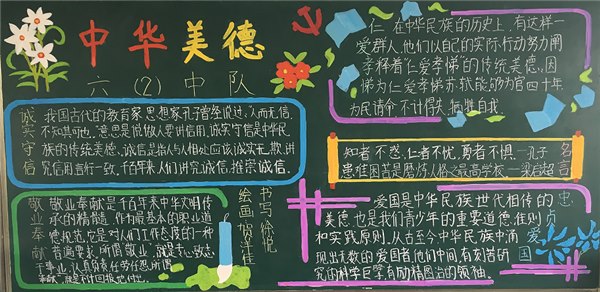 中华美德
六(2)中队
诚实守信
我国古代的教育家思想家孔子曾经说过:人而无信,
不知其可也。意思是说做人要讲信用,诚实守信是中华民
族的传统美德。诚信是指人与人相处应该诚实无欺,讲
究信用言行一致,千百年来人们讲究诚信,推崇诚信。
敬业奉献
敬业奉献是千百年来中华文明传
承的精髓,作为最基本的职业道
德规范,它是对人们工作态度的一种
普遍要求,所谓敬业,就是专心致志
于事业,认真负责任劳任怨,所谓
奉献,就是不计回报地付出。
书写 徐悦
绘画
仁,在中华民族的历史上,有这样一
爱群人,他们以自己的实际行动努力阐
孝释着“仁爱孝悌”的传统美德,因
悌为仁爱孝悌,苏轼能够为官四十年
为民请命,不计得失,牺牲自我。
知者不惑,仁者不忧,勇者不惧。—孔子
患难困苦是磨炼人俗之最高学校—梁启超
名言
爱国是中华民族世代相传的
美德,也是我们青少年的重要道德准则
和实践原则。从古至今,中华民族中涌
现出无数的爱国者,他们中间,有刻苦研
究的科学巨擘,有励精图治的领袖。
忠贞爱国